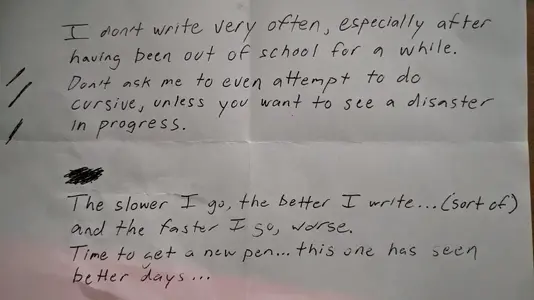 I don't write very often, especially after
having been out of school for a while.
Don't ask me to even attempt to do
cursive, unless you want to see a disaster
in progress.
The slower I go, the better I write... (sort of)
and the faster I go, worse.
Time to get a new pen... this one has seen
better days...